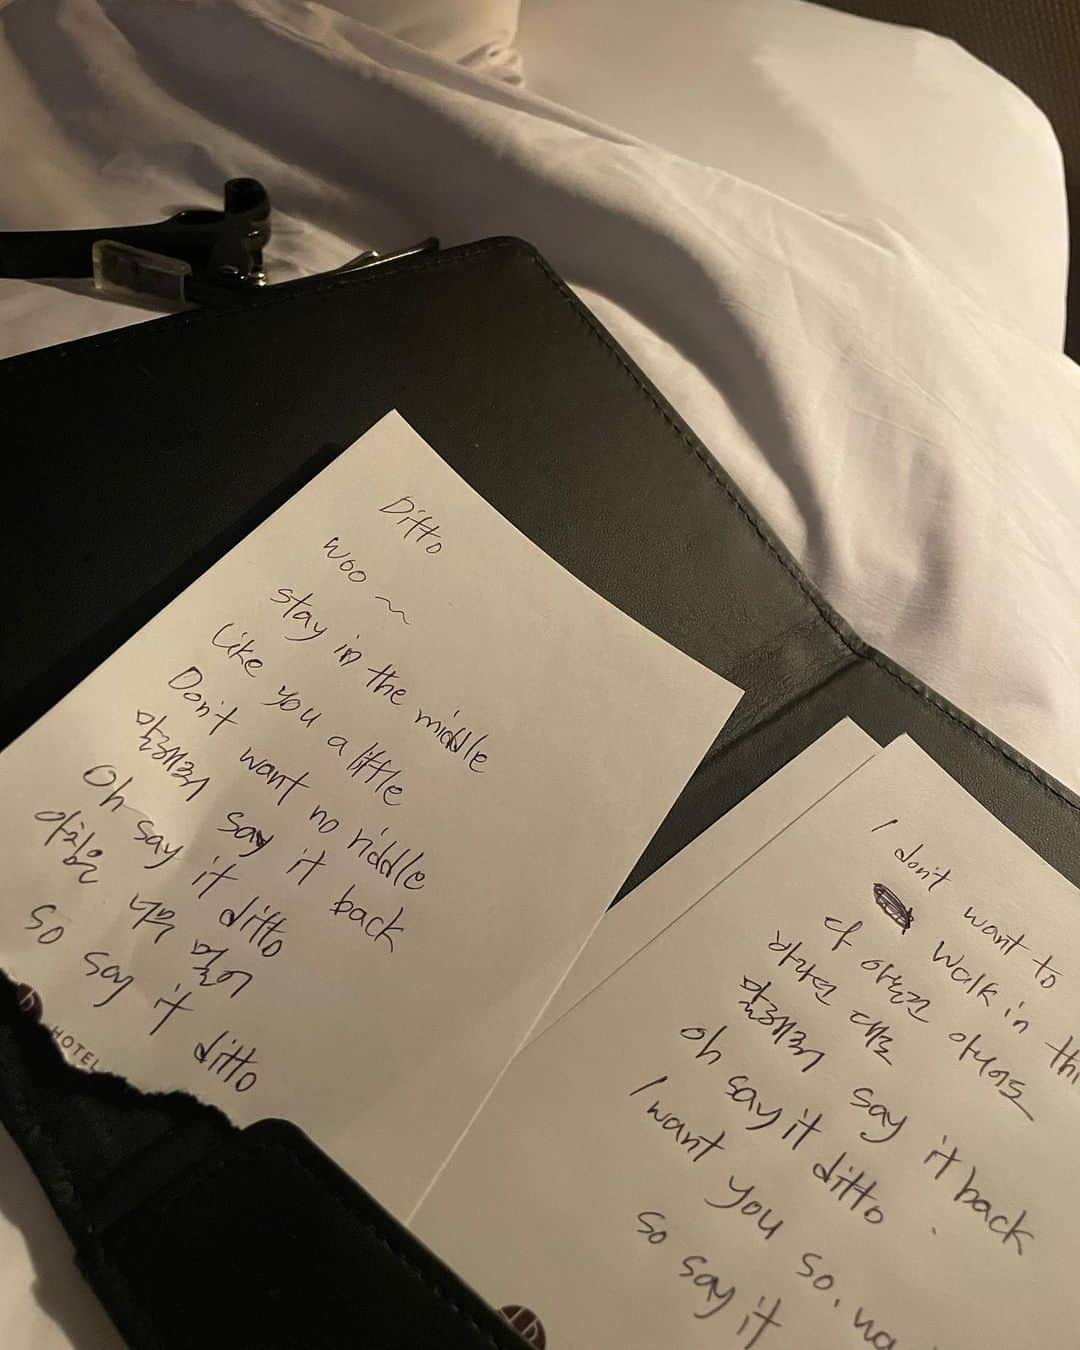 Ditto
woo ~
stay in the middle
Like you a little
Don't want no riddle
말해줘 say it back
Oh say it ditto
아침은 너무 멀어
so say it ditto
HOTEL
I don't want to
walk in this
다 아는건 아니어도
바라던 대로
말해줘 say it back
oh say it ditto.
I want you so,
so say it